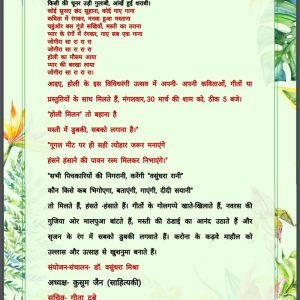 किसी की चूनर उड़ी गुलाबी, आंखें हुई शराबी।
कोई सुनाए छंद सुहाना, कोई गाए गाना
कविता में रंगकर, मनवा हुआ मस्ताना
चहुंओर बस गूंजे सखियों, मस्ती का तराना
प्यार के रंगों में रंगकर, गाए सब एक गाना
जोगीरा सा रा रा रा
जोगीरा सा रा रा रा
होली का मौसम आया
प्यार की बरखा लाया
जोगीरा सा रा रा रा
आइए, होली के इस विविधरंगी उत्सव में अपनी- अपनी कविताओं, गीतों या
प्रस्तुतियों के साथ मिलते हैं, मंगलवार,30 मार्च की शाम को, ठीक 5 बजे।
"होली मिलन" तो बहाना है
मस्ती में डुबकी, सबको लगाना है।"
"गूगल मीट पर ही सही त्योहार जरूर मनाएंगे
हंसने हंसाने की पावन रस्म मिलकर निभाएंगे।"
"सभी पिचकारियों की निगरानी, करेंगी "वसुंधरा रानी"
कौन किसे कब भिगोएगा, बताएंगी, गाएंगी, दीदी सयानी"
तो मिलते हैं, हंसते -हंसाते हैं। गीतों के गोलगप्पे खाते-खिलाते हैं, नवरस की
गुजिया ओर मालपुआ बांटते हैं, मस्ती की ठंडाई का आनंद उठाते हैं और
सृजन के रंग में सबको डुबकी लगवाते हैं। करोना के कड़वे माहौल को
उल्लास और उत्साह से खुशनुमा बनाते हैं।
संयोजन-संचालन- डॉ. वसुंधरा मिश्रा
अध्यक्ष- कुसुम जैन (साहित्यकी)
सचिव- गीता दूबे